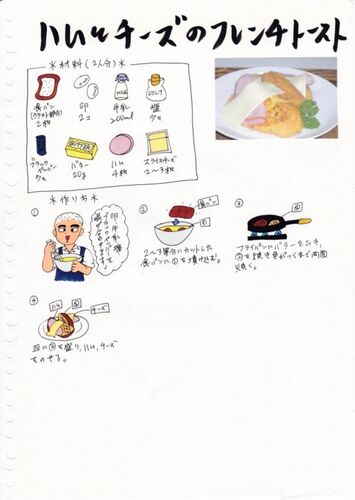 ハムチーズのフレンチトースト
＊材料(2人分)＊
食パン
2枚
卵
2コ
MILK
牛乳
200ml
SOLT
塩
少々
ブラック
ペッパー
少々
バター
20g
ハム
4枚
スライスチーズ
2〜3枚
＊作り方＊
①
卵・牛乳・塩
ブラックペッパーを
混ぜ合わせる。
②
食パン
①
2〜3等分にカットした
食パンに①を漬け込む。
③
②
フライパンにバターをひき、
②を焼き色がつくまで両面
焼く。
④
ハム
③
チーズ
皿に③を盛り、ハム、チーズ
をのせる。